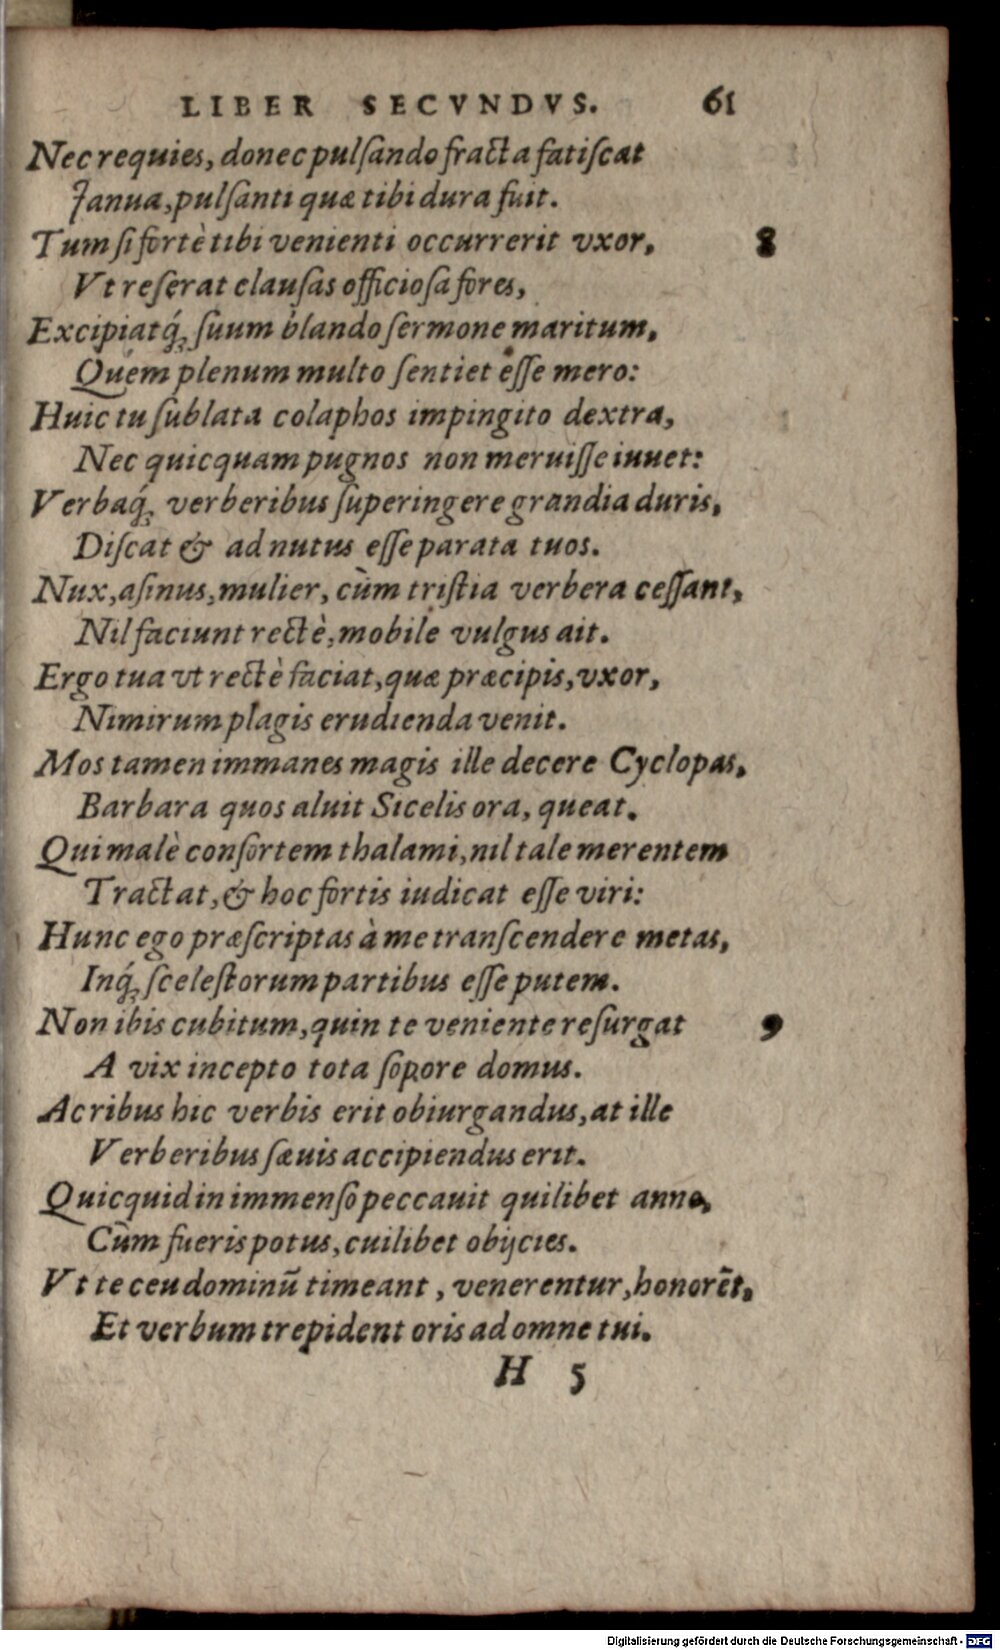 LIBER SECVNDVS. 61
Nec requies, donec pulſando fracta fatiſcat
Janua, pulſanti quæ tibi dura fuit.
Tum ſi fortè tibi venienti occurrerit vxor, 8
Vt reſerat clauſas officioſa fores,
Excipiatq́; ſuum blando ſermone maritum,
Quem plenum multo ſentiet eſſe mero:
Huic tu ſublata colaphos impingito dextra,
Nec quicquam pugnos non meruiſſe iuuet:
Verbaq́; verberibus ſuperingere grandia duris,
Diſcat & ad nutus eſſe parata tuos.
Nux, aſinus, mulier, cùm triſtia verbera ceſſant,
Nil faciunt rectè, mobile vulgus ait.
Ergo tua vt rectè faciat, quæ præcipis, vxor,
Nimirum plagis erudienda venit.
Mos tamen immanes magis ille decere Cyclopas,
Barbara quos aluit Sicelis ora, queat.
Qui malè conſortem thalami, nil tale merentem
Tractat, & hoc fortis iudicat eſſe viri:
Hunc ego præſcriptas à me tranſcendere metas,
Inq́; ſceleſtorum partibus eſſe putem.
Non ibis cubitum, quin te veniente reſurgat 9
A vix incepto tota ſopore domus.
Acribus hic verbis erit obiurgandus, at ille
Verberibus ſæuis accipiendus erit.
Quicquid in immenſo peccauit quilibet anno,
Cùm fueris potus, cuilibet obijcies.
Vt te ceu dominū timeant, venerentur, honorēt,
Et verbum trepident oris ad omne tui.
H 5
Digitalisierung gefördert durch die Deutsche Forschungsgemeinschaft - DFG